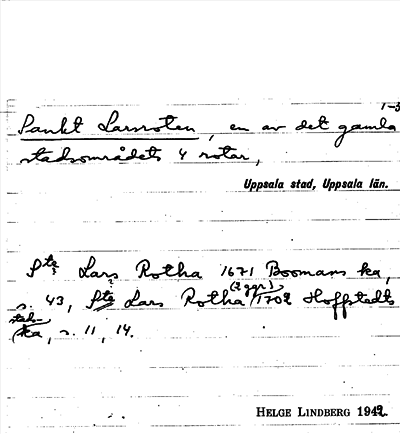 1-3
Sankt Larsroten, en av det gamla
stadsområdets 4 rotar,
Uppsala stad, Uppsala län.
Ste Lars Rotha 1671 Boomans ka,
s. 43, Ste Lars Rotha (2 ggr) 1702 Hoffstedts
stads-
ka, s. 11, 14.
HELGE LINDBERG 1942.